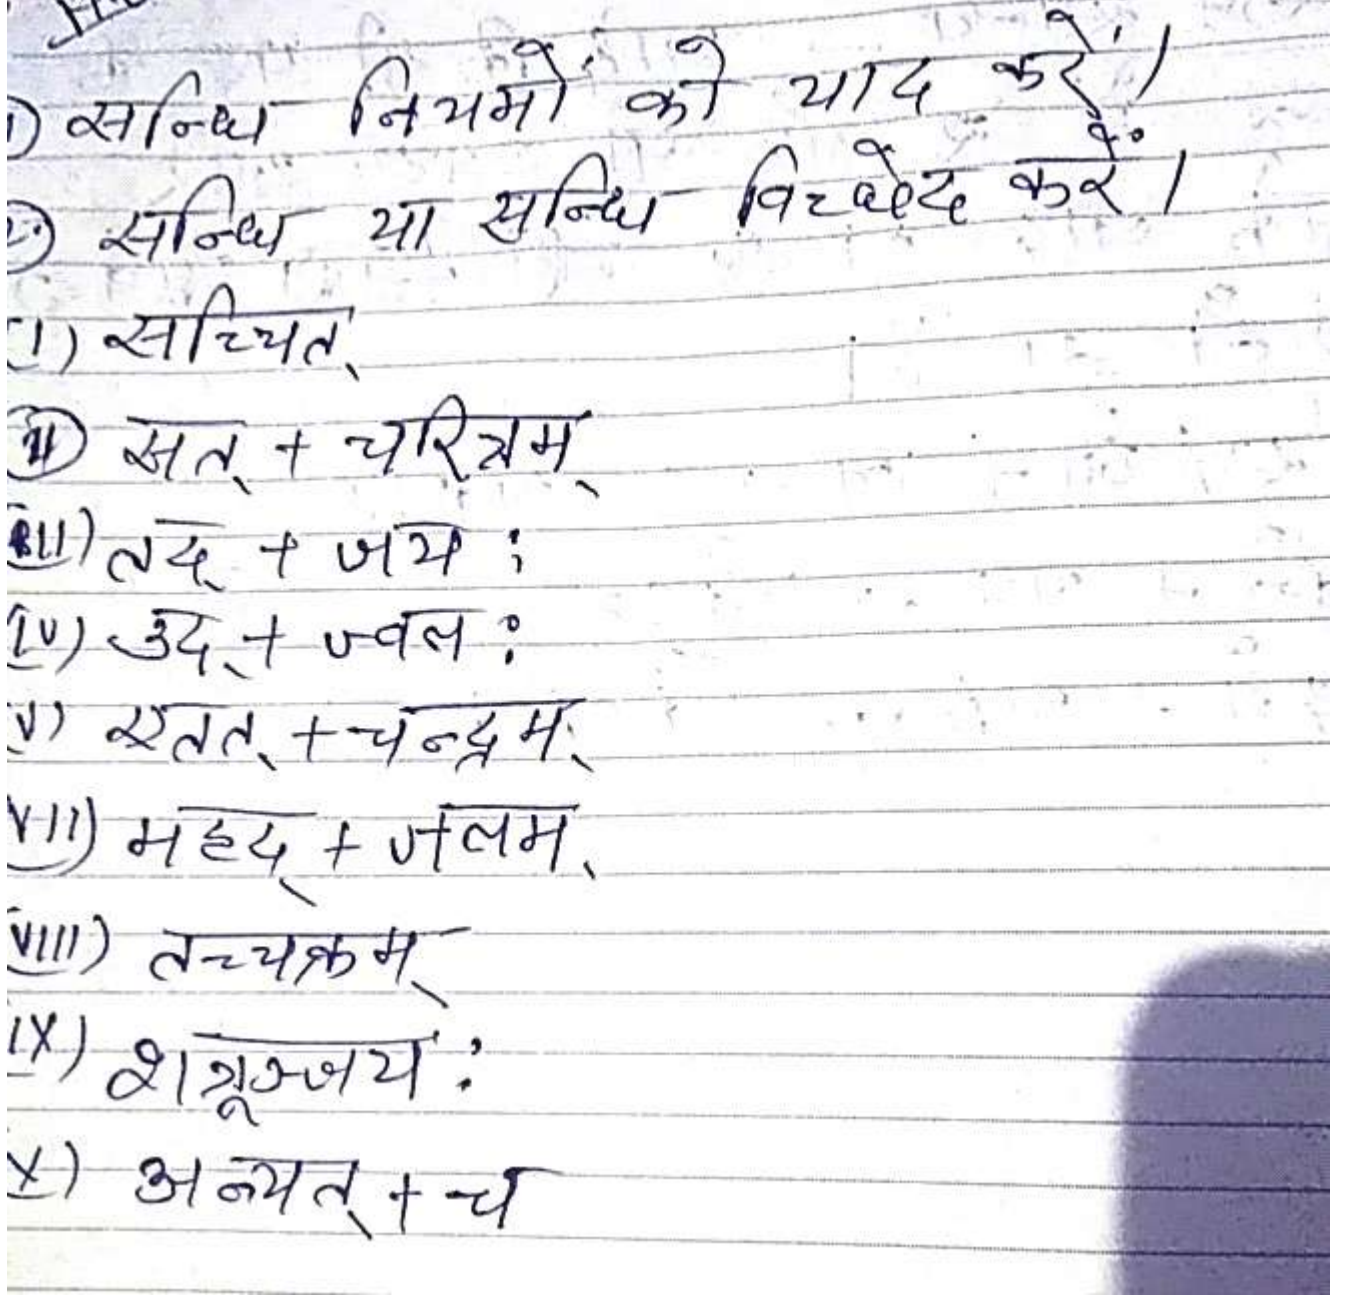 1) सन्धि नियमों को याद करें।
2. सन्धि या सुन्धि विच्छेद करें।
(I) सच्चित्
(II) सत् + चरित्रम्
(III) तद् + जय:
(IV) उद् + ज्वल:
V) एतत् + चन्द्रम्
VII) महद् + जलम्
VIII) तच्चक्रम्
IX) शत्रूञ्जय:
X) अन्यत् + च